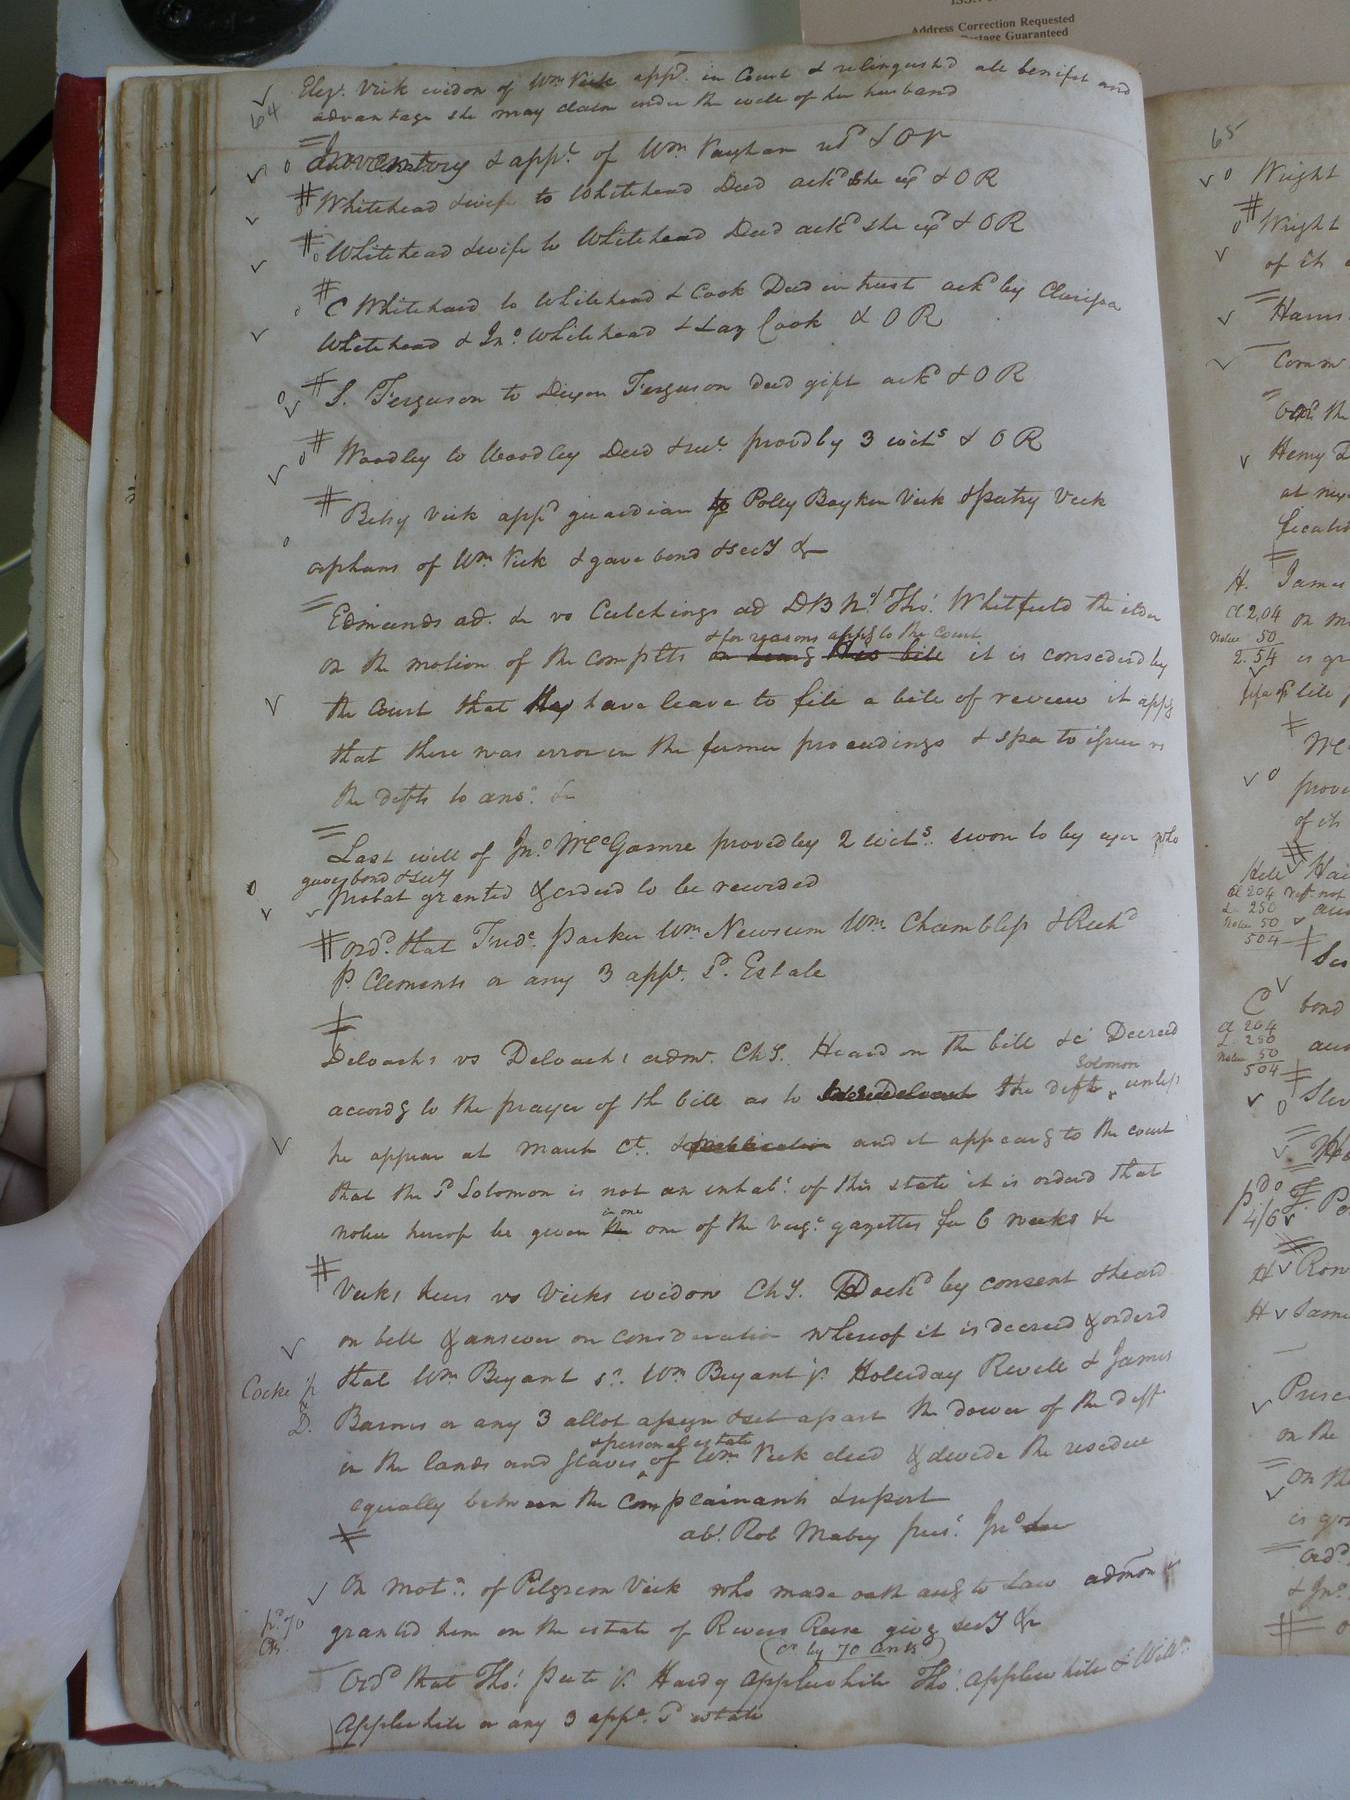 Address Correction Requested
Postage Guaranteed
64
Eliz. Vick widow of Wm Vick appd. in Court & relinguishd all benifit and
advantage she may claim under the will of her husband
Inventory & appt. of Wm Vaughan retd & O R
Whitehead & wife to Whitehead Deed ackd she exd & O R
Whitehead & wife to Whitehead Deed ackd she exd & O R
C Whitehead to Whitehead & Cook Deed in trust ackd by Clarissa
Whitehead & Jno. Whitehead & Laz Cook & O R
S. Ferguson to Dixon Ferguson deed gift ackd & O R
Woodley to Woodley Deed & rect. provd by 3 wits & O R
Betsy Vick appd guardian to Polly Boykin Vick & patsy Vick
orphans of Wm Vick & gave bond & secy &
Edmunds ad. &c vs Cutchings ad DB N. Thos. Whitfield the elder
& for reasons appg to the Court
on the motion of the complts on hearg this bill it is considerd by
the Court that they have leave to file a bill of review it appg
that there was error in the former proceedings & spa to issue vs
the defts to ans. &c
Last will of Jno McGamre proved by 2 wits. sworn to by exr who
gave bond & secy
probat granted & orderd to be recorded
ordd. that Fredc. parker Wm Newsum Wm. Chambliss & Richd
P. Clements or any 3 appr. sd. Estate
Deloachs vs Deloachs admr. Chy. Heard on the bill &c Decreed
Solomon
accordg to the prayer of th bill as to the deft unless
he appear at March Ct. & publication and it appearg to the court
that the sd Solomon is not an inhabt. of this state it is orderd that
in one
notice hereof be given the one of the virga. gazettes for 6 weeks &c
Vicks heirs vs Vicks widow Chy. Dockd by consent & heard
on bill & answer on consideration whereof it is decreed & orderd
Cocke
D.
that Wm Bryant sr. Wm Bryant jr. Holliday Revell & James
Barnes or any 3 allot assign & set apart the dower of the deft
& personal estate
in the lands and slaves of Wm Vick decd & devide the residue
equally between the complainants & report
abt. Rob Mabry just. Jno
On motn. of Pilgrim Vick who made oath accg to Law admon is
grantd him on the estate of Rivers Reese givg secy &c
(cr by 70 cents)
Ordd that Thos. pete jr. Hardy Applewhite Thos. Applewhite & Will.
Applewhite or any 3 appr. sd estate
65
Wright
Wright
of th
Comm
Henry
H. James
204
50
2.54
prov
of th
204
250
50
504
C
bond
204
250
50
504
H
H
on the
On the